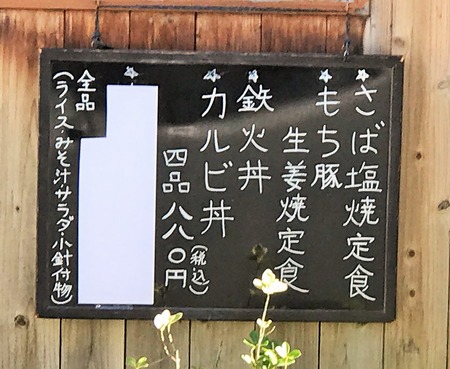 さば塩焼定食
もち豚
生姜焼定食
鉄火丼
カルビ丼
四品八八〇円
(税込)
全品
(ライス・みそ汁・サラダ・小針付物)